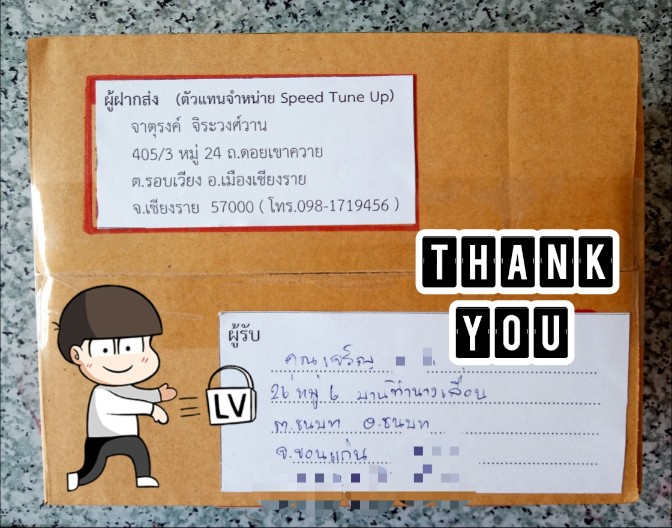 ผู้ฝากส่ง (ตัวแทนจำหน่าย Speed Tune Up)
จาตุรงค์ จิระวงศ์วาน
405/3 หมู่ 24 ถ.ดอยเขาควาย
ต.รอบเวียง อ.เมืองเชียงราย
จ.เชียงราย 57000 ( โทร.098-1719456 )
THANK
YOU
ผู้รับ
คุณเจริญ
LV
26 หมู่ 6 บ้านท่านางเลื่อน
ต.ชนบท อ.ชนบท
จ.ขอนแก่น